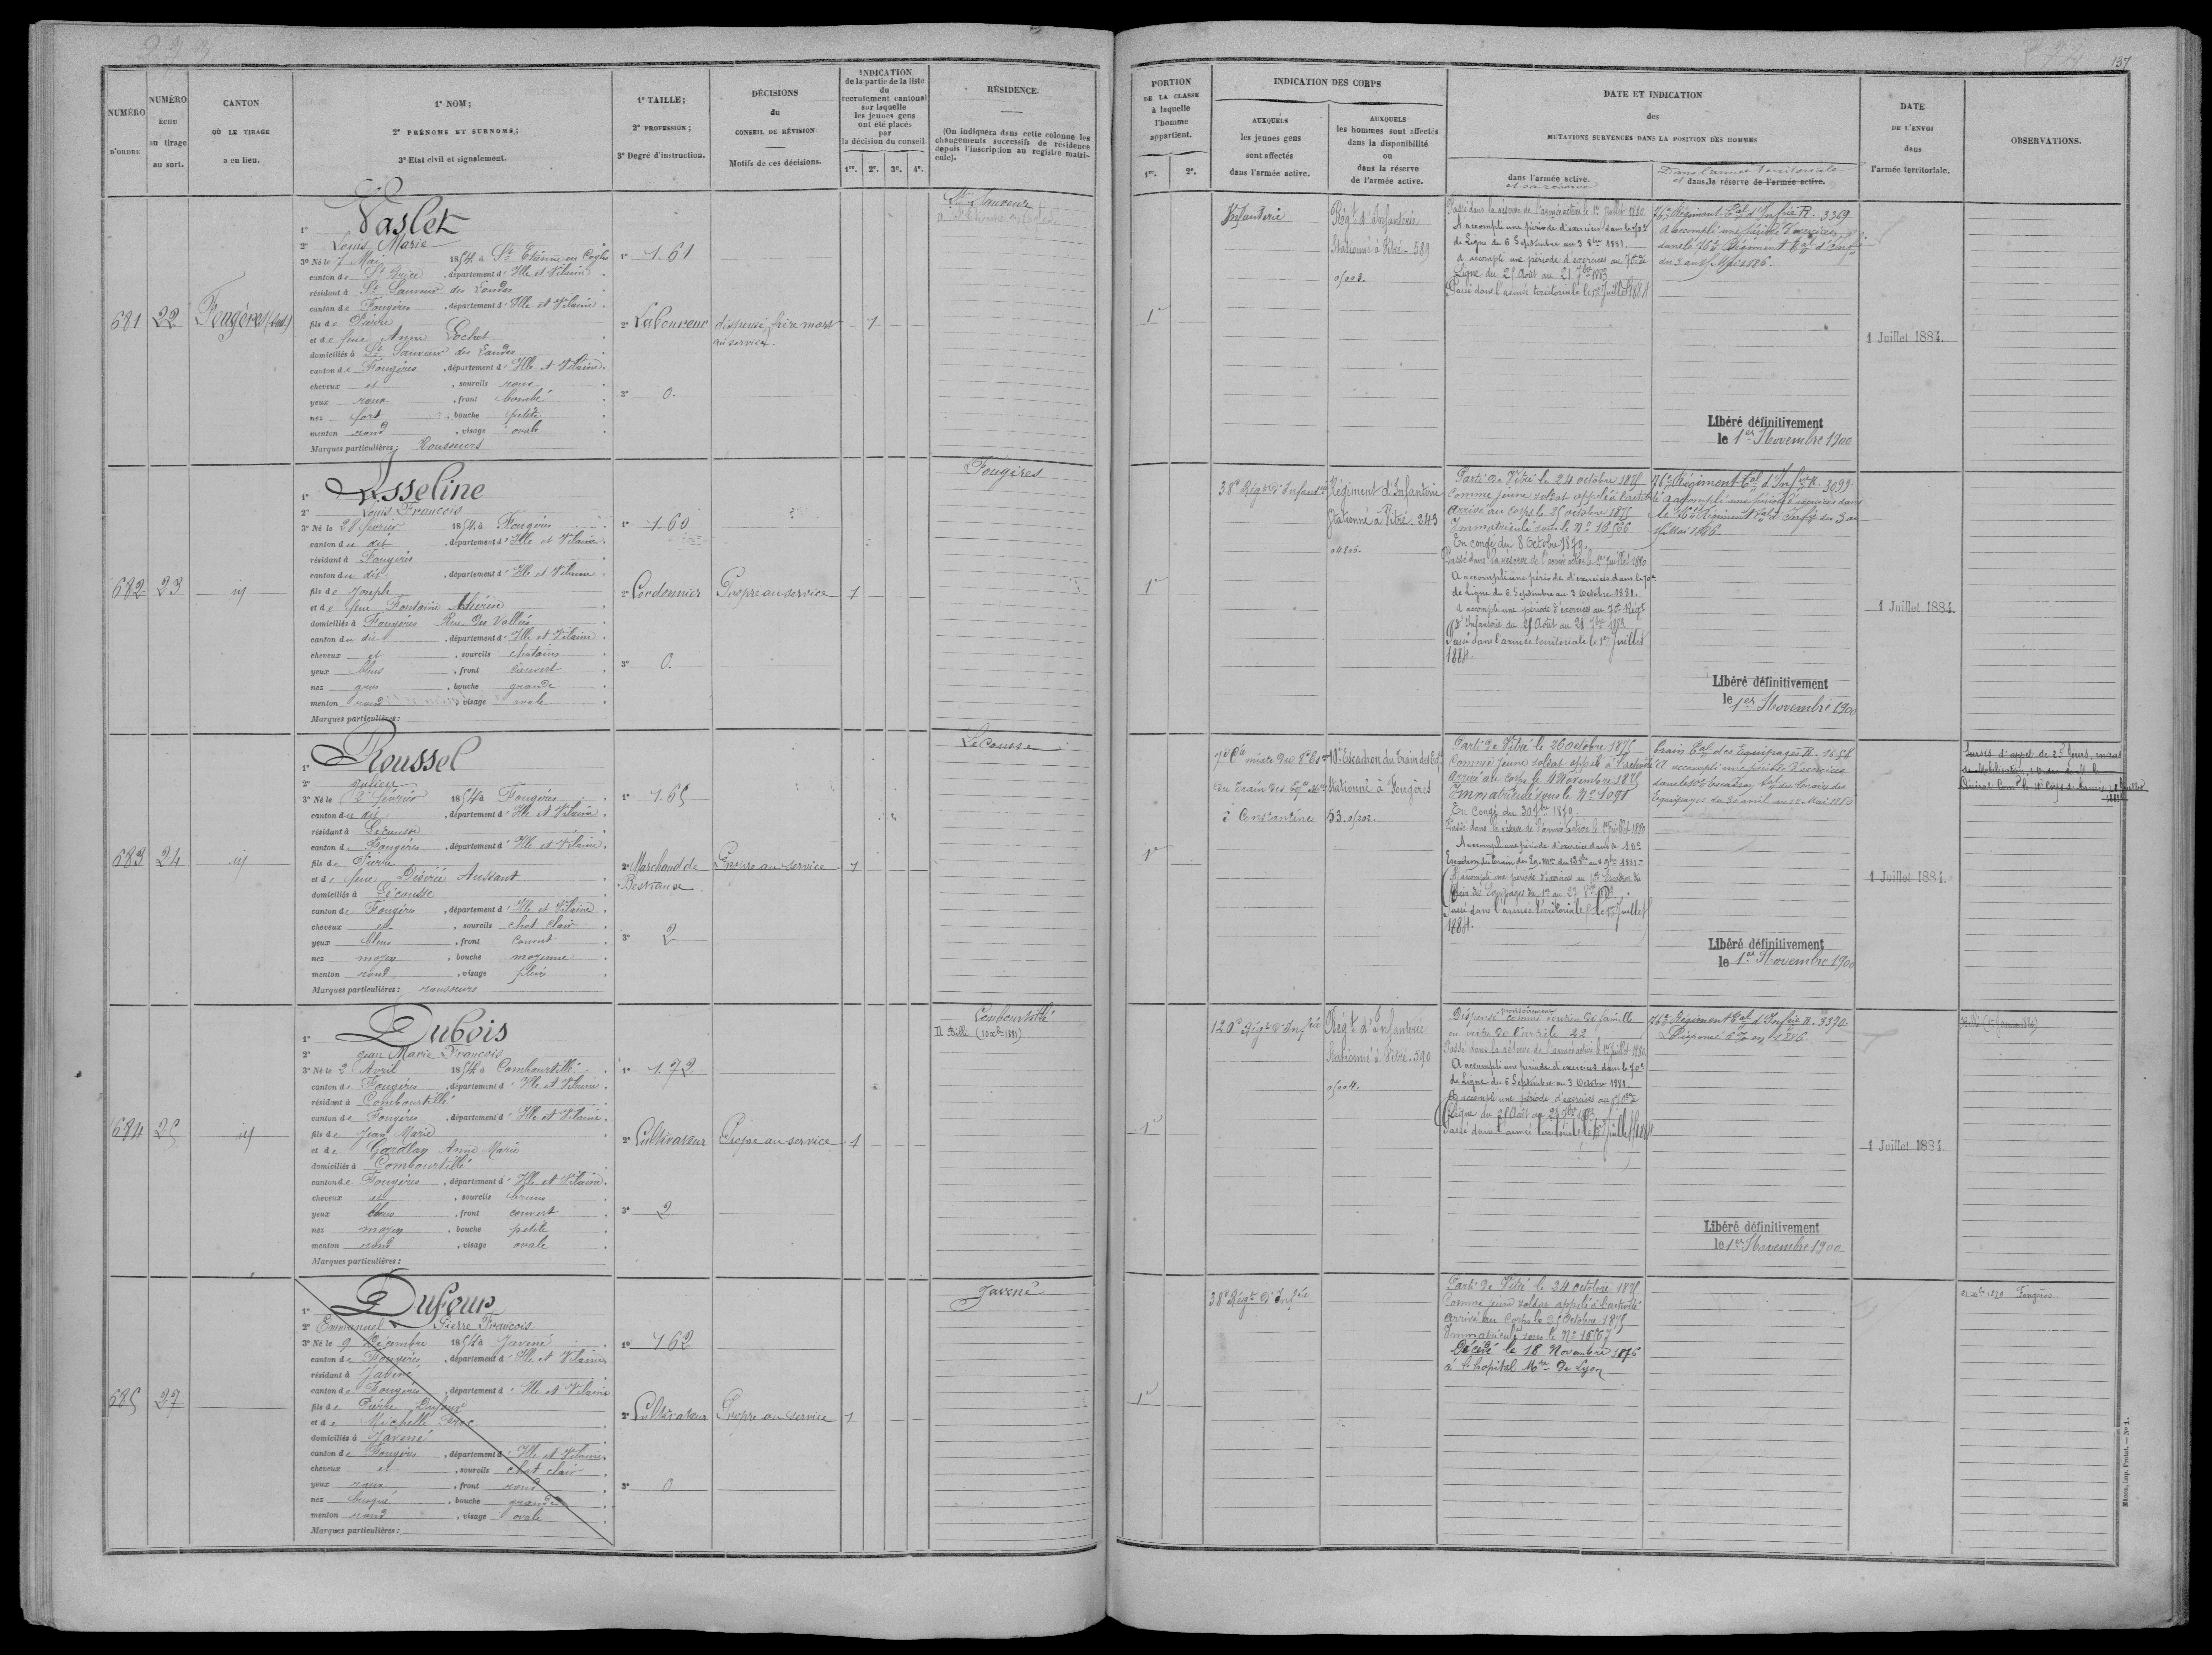 273
NUMÉRO
D'ORDRE
NUMÉRO
ÉCHU
au tirage
au sort.
CANTON
OÙ LE TIRAGE
a eu lieu.
1° NOM;
2° PRÉNOMS ET SURNOMS;
3° Etat civil et signalement.
1° TAILLE;
2° PROFESSION;
3° Degré d'instruction.
DÉCISIONS
du
CONSEIL DE RÉVISION
Motifs de ces décisions.
INDICATION
de la partie de la liste
du
recrutement cantonal
sur laquelle
les jeunes gens
ont été placés
par
la décision du conseil.
1re. 2e. 3e. 4e.
RÉSIDENCE.
(On indiquera dans cette colonne les
changements successifs de résidence
depuis l'inscription au registre matri-
cule).
681
22
Fougères (Sud)
1° Vaslet
2° Louis Marie
3° Né le 7 Mai 1854 à St Etienne en Cogles
canton de St Brice, département d'Ille et Vilaine
résidant à St Sauveur des Landes
canton de Fougères, département d'Ille et Vilaine
fils de Pierre
et de feue Anne Pochet
domiciliés à St Sauveur des Landes
canton de Fougères, département d'Ille et Vilaine
cheveux et, sourcils roux
yeux roux, front bombé
nez fort, bouche petite
menton rond, visage ovale
Marques particulières: Rousseurs
1° 1.61
2° Laboureur
3° 0.
dispensé frère mort
au service.
1
St Sauveur
682
23
id
1° Asseline
2° Louis François
3° Né le 28 février 1854 à Fougères
canton du dit, département d'Ille et Vilaine
résidant à Fougères
canton du dit, département d'Ille et Vilaine
fils de Joseph
et de feue Fontaine Thérèse
domiciliés à Fougères Rue des Vallées
canton du dit, département d'Ille et Vilaine
cheveux et, sourcils chatains
yeux bleus, front couvert
nez gros, bouche grande
menton rond, visage ovale
Marques particulières:
1° 1.60
2° Cordonnier
3° 0.
Propre au service
1
Fougères
683
24
id
1° Roussel
2° Julien
3° Né le 12 février 1854 à Fougères
canton du dit, département d'Ille et Vilaine
résidant à Lécousse
canton de Fougères, département d'Ille et Vilaine
fils de Pierre
et de feue Désirée Aussant
domiciliés à Lécousse
canton de Fougères, département d'Ille et Vilaine
cheveux et, sourcils chat clair
yeux bleus, front couvert
nez moyen, bouche moyenne
menton rond, visage plein
Marques particulières: rousseurs
1° 1.65
2° Marchand de
Bestiaux
3° 2
Propre au service
1
Lécousse
684
25
id
1° Dubois
2° Jean Marie François
3° Né le 2 Avril 1854 à Combourtillé
canton de Fougères, département d'Ille et Vilaine
résidant à Combourtillé
canton de Fougères, département d'Ille et Vilaine
fils de Jean Marie
et de Gardlay Anne Marie
domiciliés à Combourtillé
canton de Fougères, département d'Ille et Vilaine
cheveux et, sourcils bruns
yeux bleus, front couvert
nez moyen, bouche petite
menton rond, visage ovale
Marques particulières:
1° 1.72
2° Cultivateur
3° 2
Propre au service
1
Combourtillé
Billé
685
27
1° Dufour
2° Emmanuel Pierre François
3° Né le 9 Décembre 1854 à Javené
canton de Fougères, département d'Ille et Vilaine
résidant à Javené
canton de Fougères, département d'Ille et Vilaine
fils de Pierre Dufour
et de Michelle Froc
domiciliés à Javené
canton de Fougères, département d'Ille et Vilaine
cheveux et, sourcils chat clair
yeux roux, front rond
nez busqué, bouche grande
menton rond, visage ovale
Marques particulières:
1° 1.62
2° Cultivateur
3° 0
Propre au service
1
Javené
274
137
PORTION
DE LA CLASSE
à laquelle
l'homme
appartient.
1re. 2e.
INDICATION DES CORPS
AUXQUELS
les jeunes gens
sont affectés
dans l'armée active.
AUXQUELS
les hommes sont affectés
dans la disponibilité
ou
dans la réserve
de l'armée active.
DATE ET INDICATION
des
MUTATIONS SURVENUES DANS LA POSITION DES HOMMES
dans l'armée active.
et sa réserve
Dans l'armée territoriale
et dans la réserve de l'armée active.
DATE
DE L'ENVOI
dans
l'armée territoriale.
OBSERVATIONS.
1re
Infanterie
Régt d'Infanterie
Stationné à Vitré. 589
Passé dans la réserve de l'armée active le 1er Juillet 1880
A accompli une période d'exercices dans le 70e
de Ligne du 6 Septembre au 3 8bre 1881.
A accompli une période d'exercices au 70e de
Ligne du 25 Août au 21 7bre 1883
Passé dans l'armée territoriale le 1er Juillet 1884
76e Régiment tal d'Infrie R. 3369
A accompli une période d'exercices
dans le 76e Régiment tal d'Infie
du 3 au 15 Mai 1886.
Libéré définitivement
le 1er Novembre 1900
1 Juillet 1884.
1re
38e Régt d'Infantrie
Régiment d'Infanterie
Stationné à Vitré. 243
Parti de Vitré le 24 octobre 1875
Comme jeune soldat appelé à l'activité
Arrivé au corps le 25 octobre 1875
Immatriculé sous le No 16566
En congé du 8 Octobre 1879.
Passé dans la réserve de l'armée active le 1er Juillet 1880
A accompli une période d'exercices dans le 70e
de Ligne du 6 Septembre au 3 Octobre 1881.
A accompli une période d'exercices au 70e Régt
d'Infanterie du 25 Août au 21 7bre 1883
Passé dans l'armée territoriale le 1er Juillet
1884.
76e Régiment tal d'Infrie R. 3099
A accompli une période d'exercices dans
le 76e Régiment tal d'Infie du 3 au
15 Mai 1886.
Libéré définitivement
le 1er Novembre 1900
1 Juillet 1884.
1re
du Train des Eqes Mres
à Constantine
10e Escadron du Train des Eqes
Stationné à Fougères
Parti de Vitré le 26 octobre 1875
Comme jeune soldat appelé à l'activité
Arrivé au corps le 4 Novembre 1875
Immatriculé sous le No 1091
En congé du 30 7bre 1879
Passé dans la réserve de l'armée active le 1er Juillet 1880
A accompli une période d'exercices dans le 10e
A accompli une période d'exercices au 10e Escadron du
Train des Equipages
Passé dans l'armée territoriale le 1er Juillet
1884.
Train tal des Equipages R. 1658
A accompli une période d'exercices
Equipages du 30 avril au 12 Mai 1886
Libéré définitivement
le 1er Novembre 1900
1 Juillet 1884.
1re
120e Régt d'Infrie
Régt d'Infanterie
Stationné à Vitré. 590
Dispensé provisoirement comme soutien de famille
en vertu de l'article 22
Passé dans la réserve de l'armée active le 1er Juillet 1880
A accompli une période d'exercices dans le 70e
de Ligne du 6 Septembre au 3 Octobre 1881.
A accompli une période d'exercices au 70e de
Ligne du 25 Août au 21 7bre 1883
Passé dans l'armée territoriale le 1er Juillet 1884
76e Régiment tal d'Infrie R. 3370
Libéré définitivement
le 1er Novembre 1900
1 Juillet 1884
1re
38e Régt d'Infrie
Parti de Vitré le 24 octobre 1875
Comme jeune soldat appelé à l'activité
Arrivé au Corps le 25 Octobre 1875
Immatriculé sous le No 16567
Décédé le 18 Novembre 1876
à l'hopital Mre de Lyon
Fougères
Mâcon, imp. Protat. — No 1.